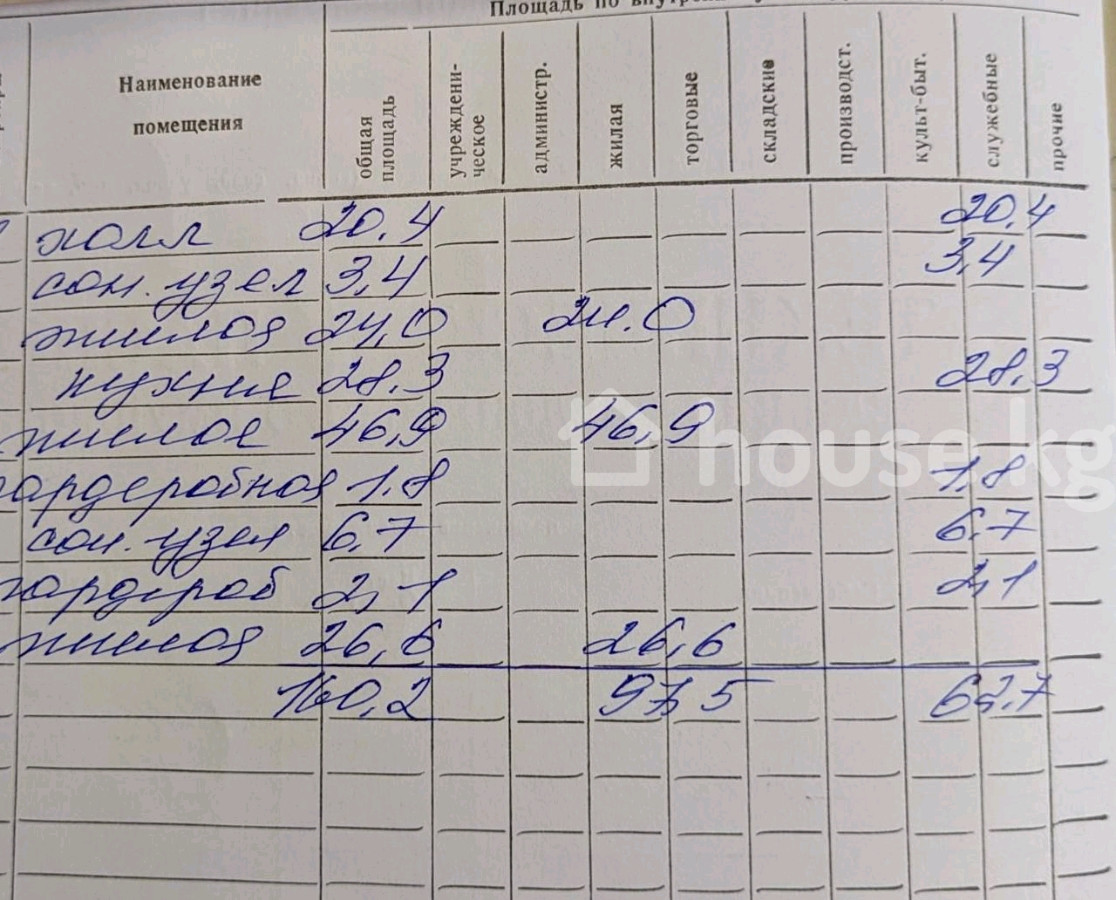 Площадь по внутрен
Наименование помещения общая площадь учреждени-ческое администр. жилая торговые складские производст. культ-быт. служебные прочие
холл 20.4 20.4
сан. узел 3,4 3,4
жилая 24,0 24.0
кухня 28.3 28.3
жилое 46,9 46,9
гардеробная 1.8 1.8
сан. узел 6.7 6.7
гардероб 2,1 2,1
жилая 26,6 26,6
160,2 97,5 62.7
house.kg